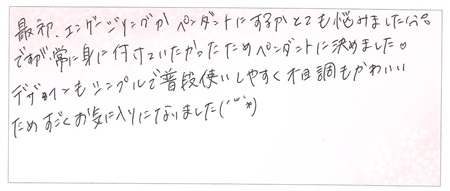 最初、エンゲージリングかペンダントにするかとても悩みました(^^;
ですが、常に身に付けていたかったためペンダントに決めました。
デザインもシンプルで普段使いしやすく、木目調もかわいい
ためすごくお気に入りになりました(^^*)